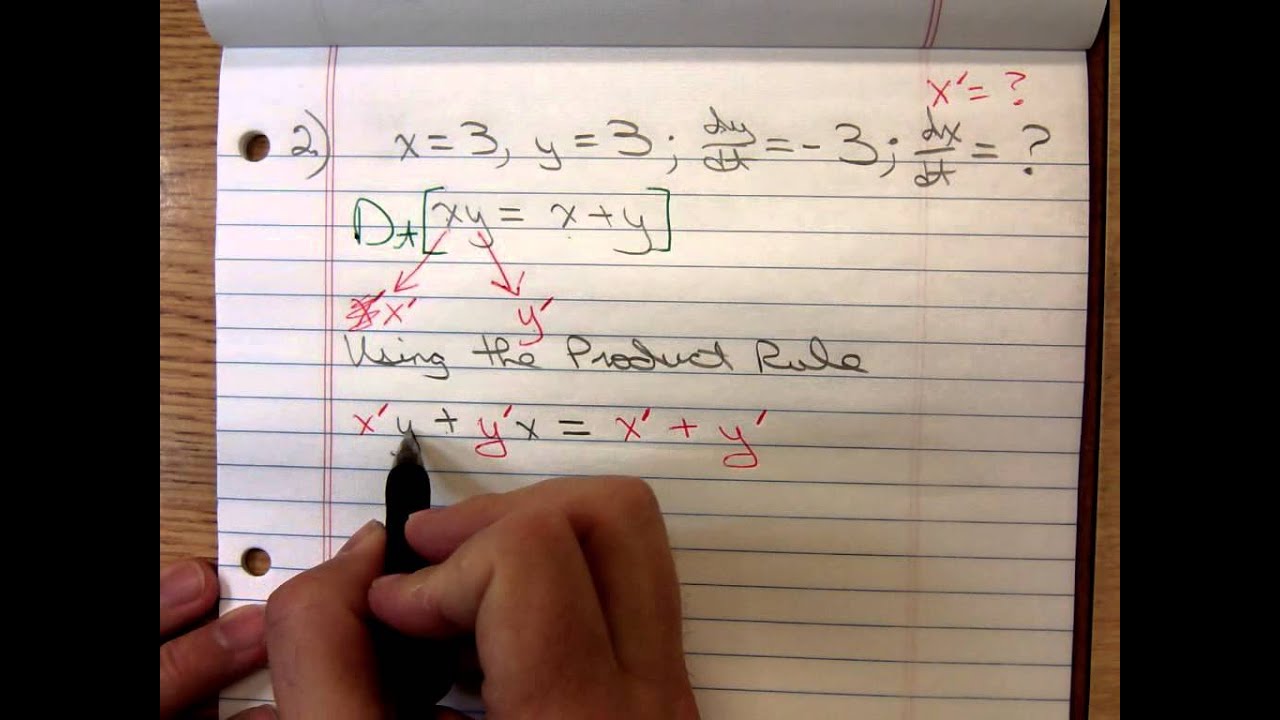 x' = ?
2.) x = 3, y = 3 ; dy/dt = - 3 ; dx/dt = ?
Dt [xy = x + y]
x' y'
Using the Product Rule
x'y + y'x = x' + y'